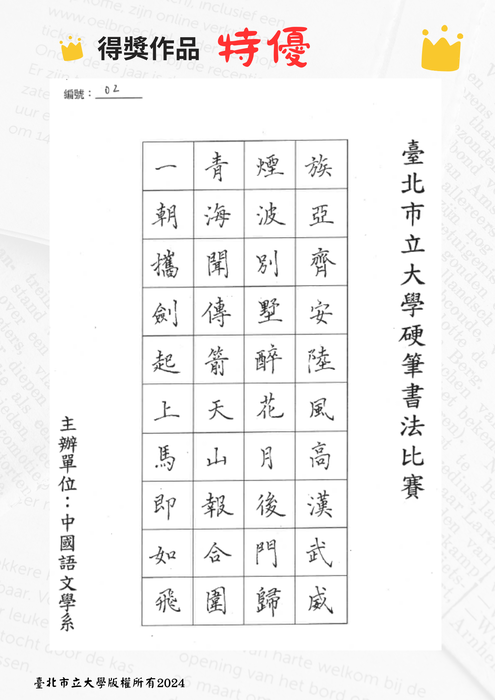 得獎作品 特優
編號：02
臺北市立大學硬筆書法比賽
族亞齊安陸風高漢武威
煙波別墅醉花月後門歸
青海聞傳箭天山報合圍
一朝攜劍起上馬即如飛
主辦單位：中國語文學系
臺北市立大學版權所有2024